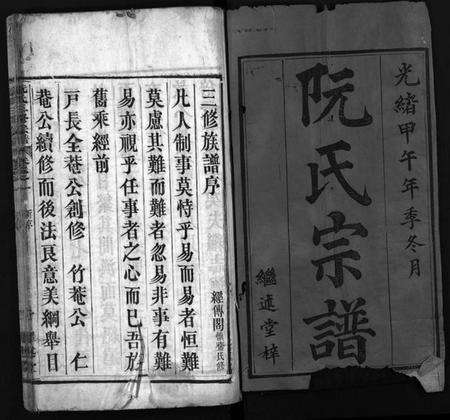 光緒甲午年季冬月
阮氏宗譜
繼述堂梓
三修族譜序
經傳閣
凡人制事莫恃乎易而易者恒難
莫慮其難而難者忽易非事有難
易亦視乎任事者之心而已吾族
舊乘經前
戶長全菴公創修 竹菴公 仁
菴公續修而後法良意美綱舉目